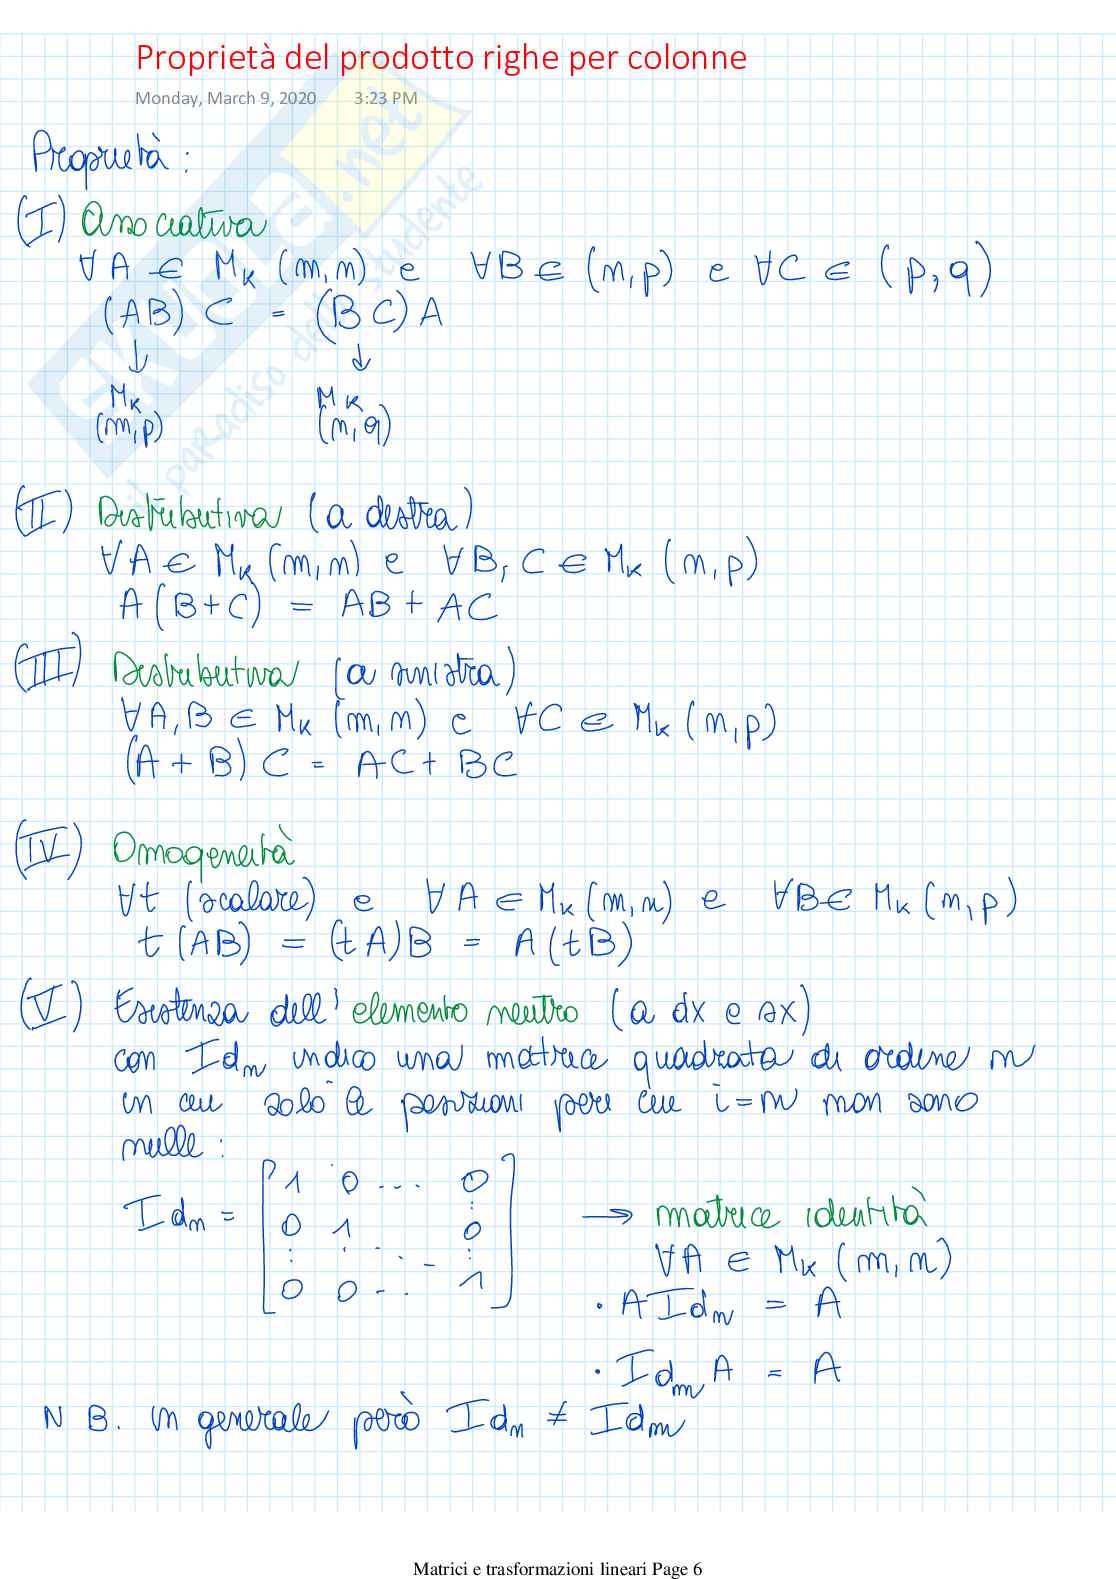 Proprietà del prodotto righe per colonne
Monday, March 9, 2020 3:23 PM
Proprietà :
(I) Associativa
∀A ∈ M_K (m,n) e ∀B ∈ (n,p) e ∀C ∈ (p,q)
(AB) C = (BC) A
↓ ↓
M_K M_K
(m,p) (n,q)
(II) Distributiva (a destra)
∀A ∈ M_K (m,n) e ∀B, C ∈ M_K (n,p)
A(B+C) = AB + AC
(III) Distributiva (a sinistra)
∀A, B ∈ M_K (m,n) e ∀C ∈ M_K (n,p)
(A + B) C = AC + BC
(IV) Omogeneità
∀t (scalare) e ∀A ∈ M_K (m,n) e ∀B ∈ M_K (n,p)
t(AB) = (tA)B = A(tB)
(V) Esistenza dell' elemento neutro (a dx e sx)
con Id_n indico una matrice quadrata di ordine n
in cui solo le posizioni per cui i=n non sono
nulle :
Id_n = [ 1 0 ... 0
0 1 0
: : . . . - :
0 0 ... 1 ]
→ matrice identità
∀A ∈ M_K (m,n)
· A Id_n = A
· Id_m A = A
N B. in generale però Id_n ≠ Id_m
SKUOLA.net
il paradiso dello studente
Matrici e trasformazioni lineari Page 6